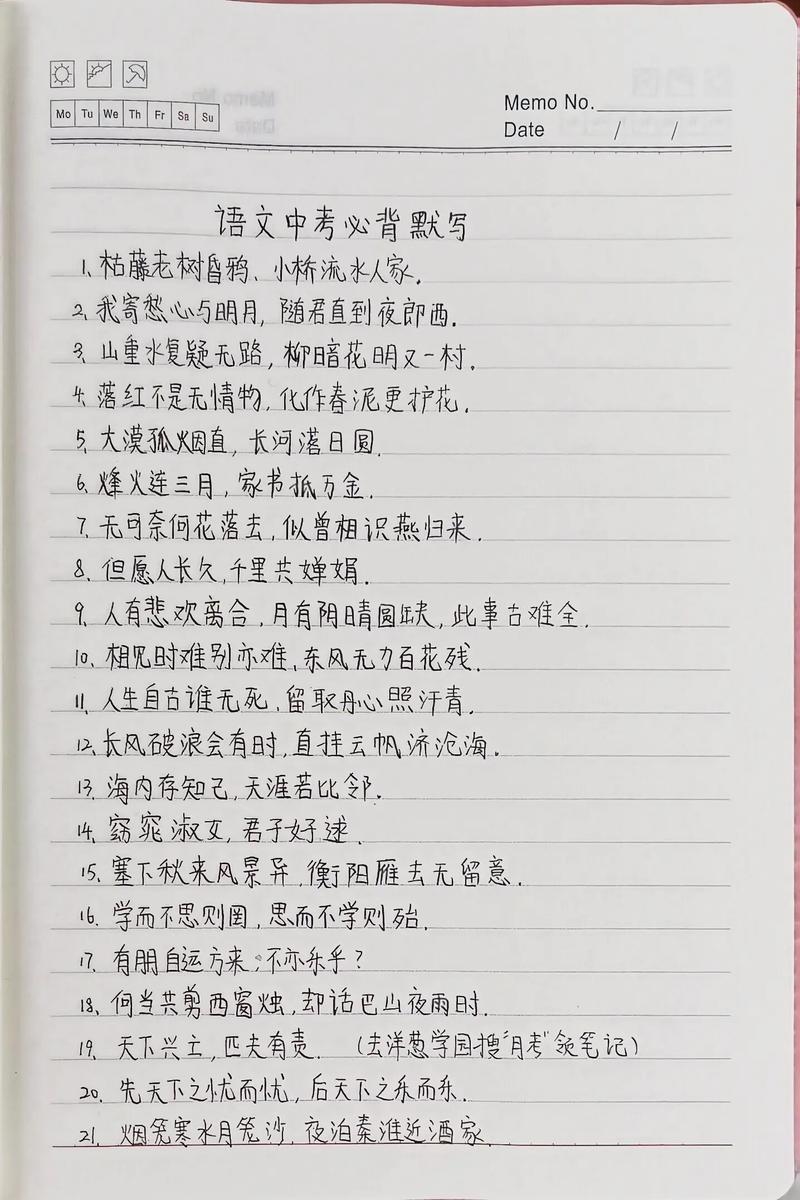 Mo Tu We Th Fr Sa Su
Memo No.
Date / /
语文中考必背默写
1、枯藤老树昏鸦、小桥流水人家.
2、我寄愁心与明月, 随君直到夜郎西.
3、山重水复疑无路, 柳暗花明又一村.
4、落红不是无情物, 化作春泥更护花.
5、大漠孤烟直, 长河落日圆.
6、烽火连三月, 家书抵万金.
7、无可奈何花落去, 似曾相识燕归来.
8、但愿人长久, 千里共婵娟.
9、人有悲欢离合, 月有阴晴圆缺, 此事古难全.
10、相见时难别亦难, 东风无力百花残.
11、人生自古谁无死, 留取丹心照汗青.
12、长风破浪会有时, 直挂云帆济沧海.
13、海内存知己, 天涯若比邻.
14、窈窕淑女, 君子好逑.
15、塞下秋来风景异, 衡阳雁去无留意.
16、学而不思则罔, 思而不学则殆.
17、有朋自远方来, 不亦乐乎?
18、何当共剪西窗烛, 却话巴山夜雨时.
19、天下兴亡, 匹夫有责. (去洋葱学园搜"月考"领笔记)
20、先天下之忧而忧, 后天下之乐而乐.
21、烟笼寒水月笼沙, 夜泊秦淮近酒家.